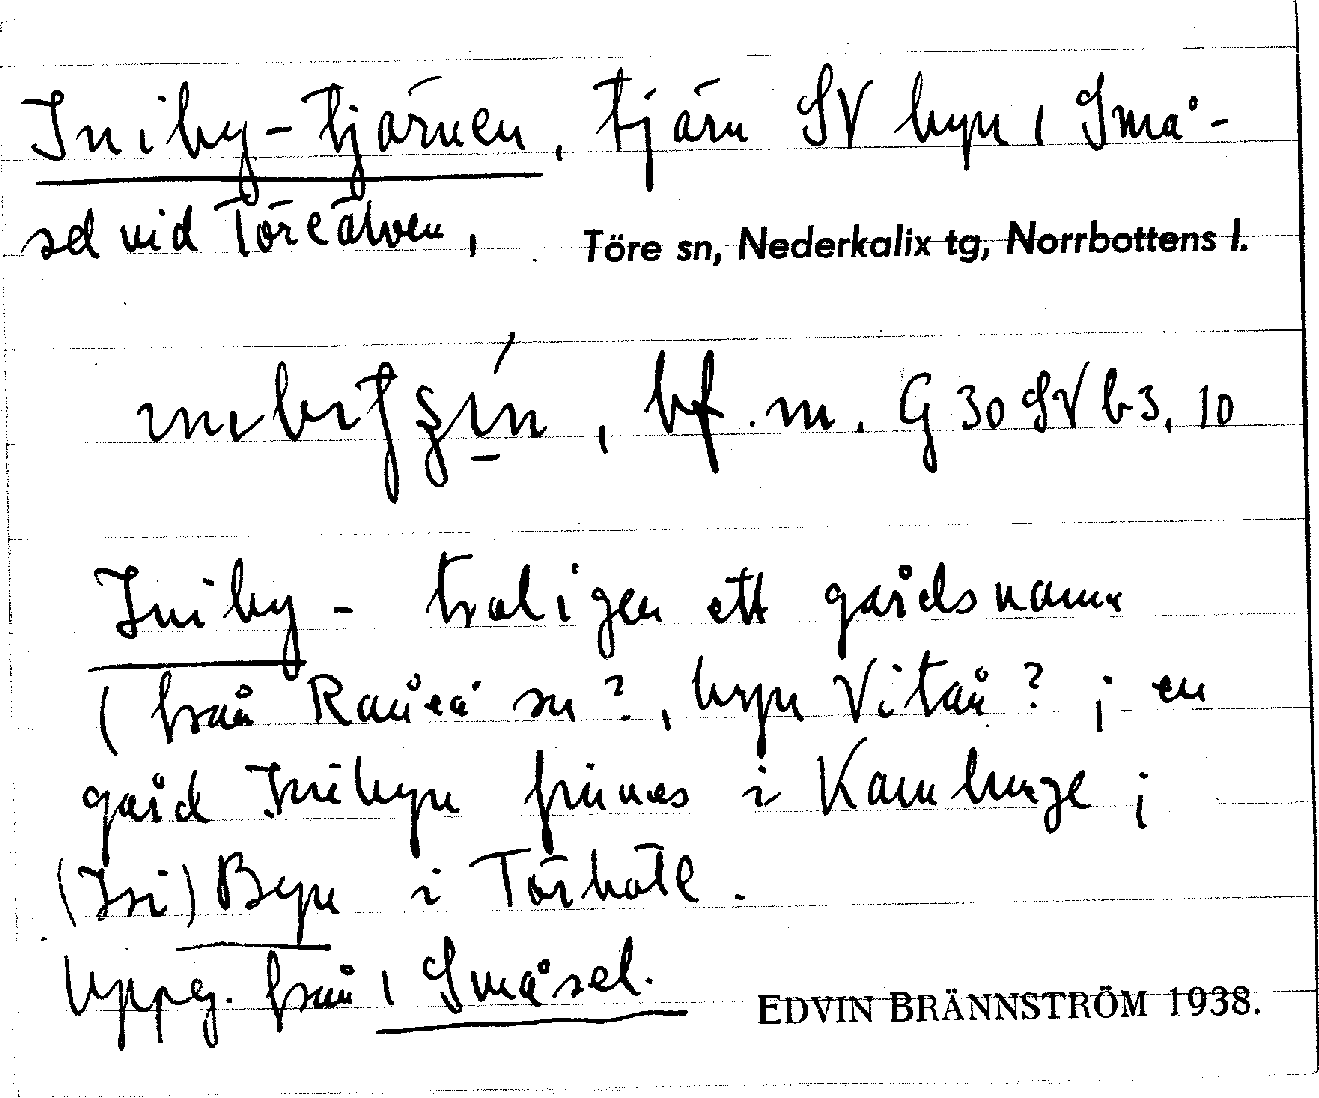 Iniby-tjärnen, tjärn SV byn 1 Små-
sel vid Töreälven,
Töre sn, Nederkalix tg, Norrbottens l.
bf. m. G 30 SV b 3, 10
Iniby - troligen ett gårdsnamn
(från Råneå sn?, byn Vitån? ; en
gård Inibyn finnes i Kamlunge ;
(Ini) Byn i Törböle.
Uppg. från 1 Småsel.
EDVIN BRÄNNSTRÖM 1938.